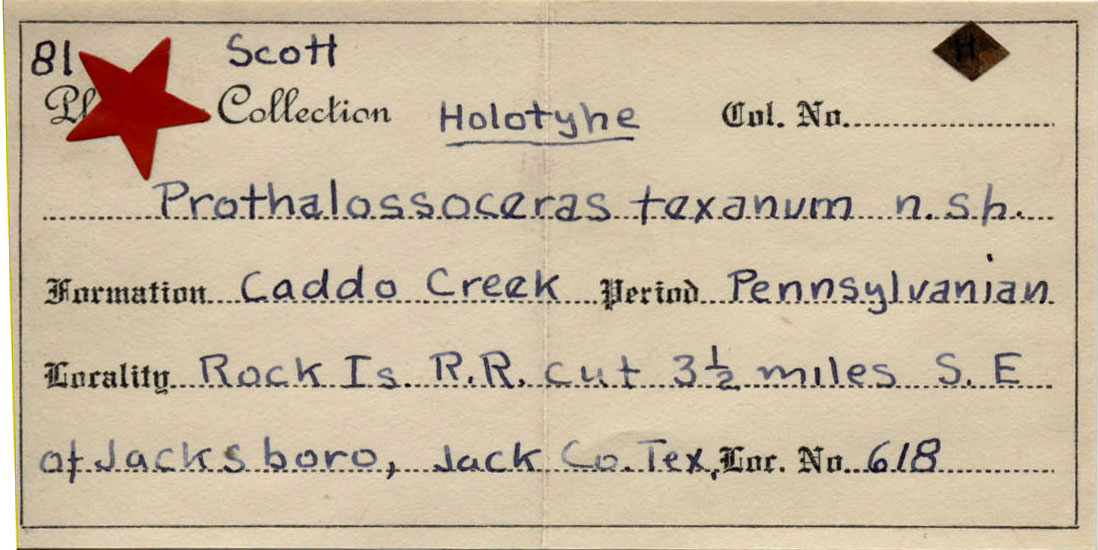 81 Scott H
Collection Holotype Col. No.
Prothalossoceras texanum n.sp.
Formation Caddo Creek Period Pennsylvanian
Locality Rock Is. R.R. cut 3½ miles S. E
of Jacksboro, Jack Co. Tex, Loc. No. 618